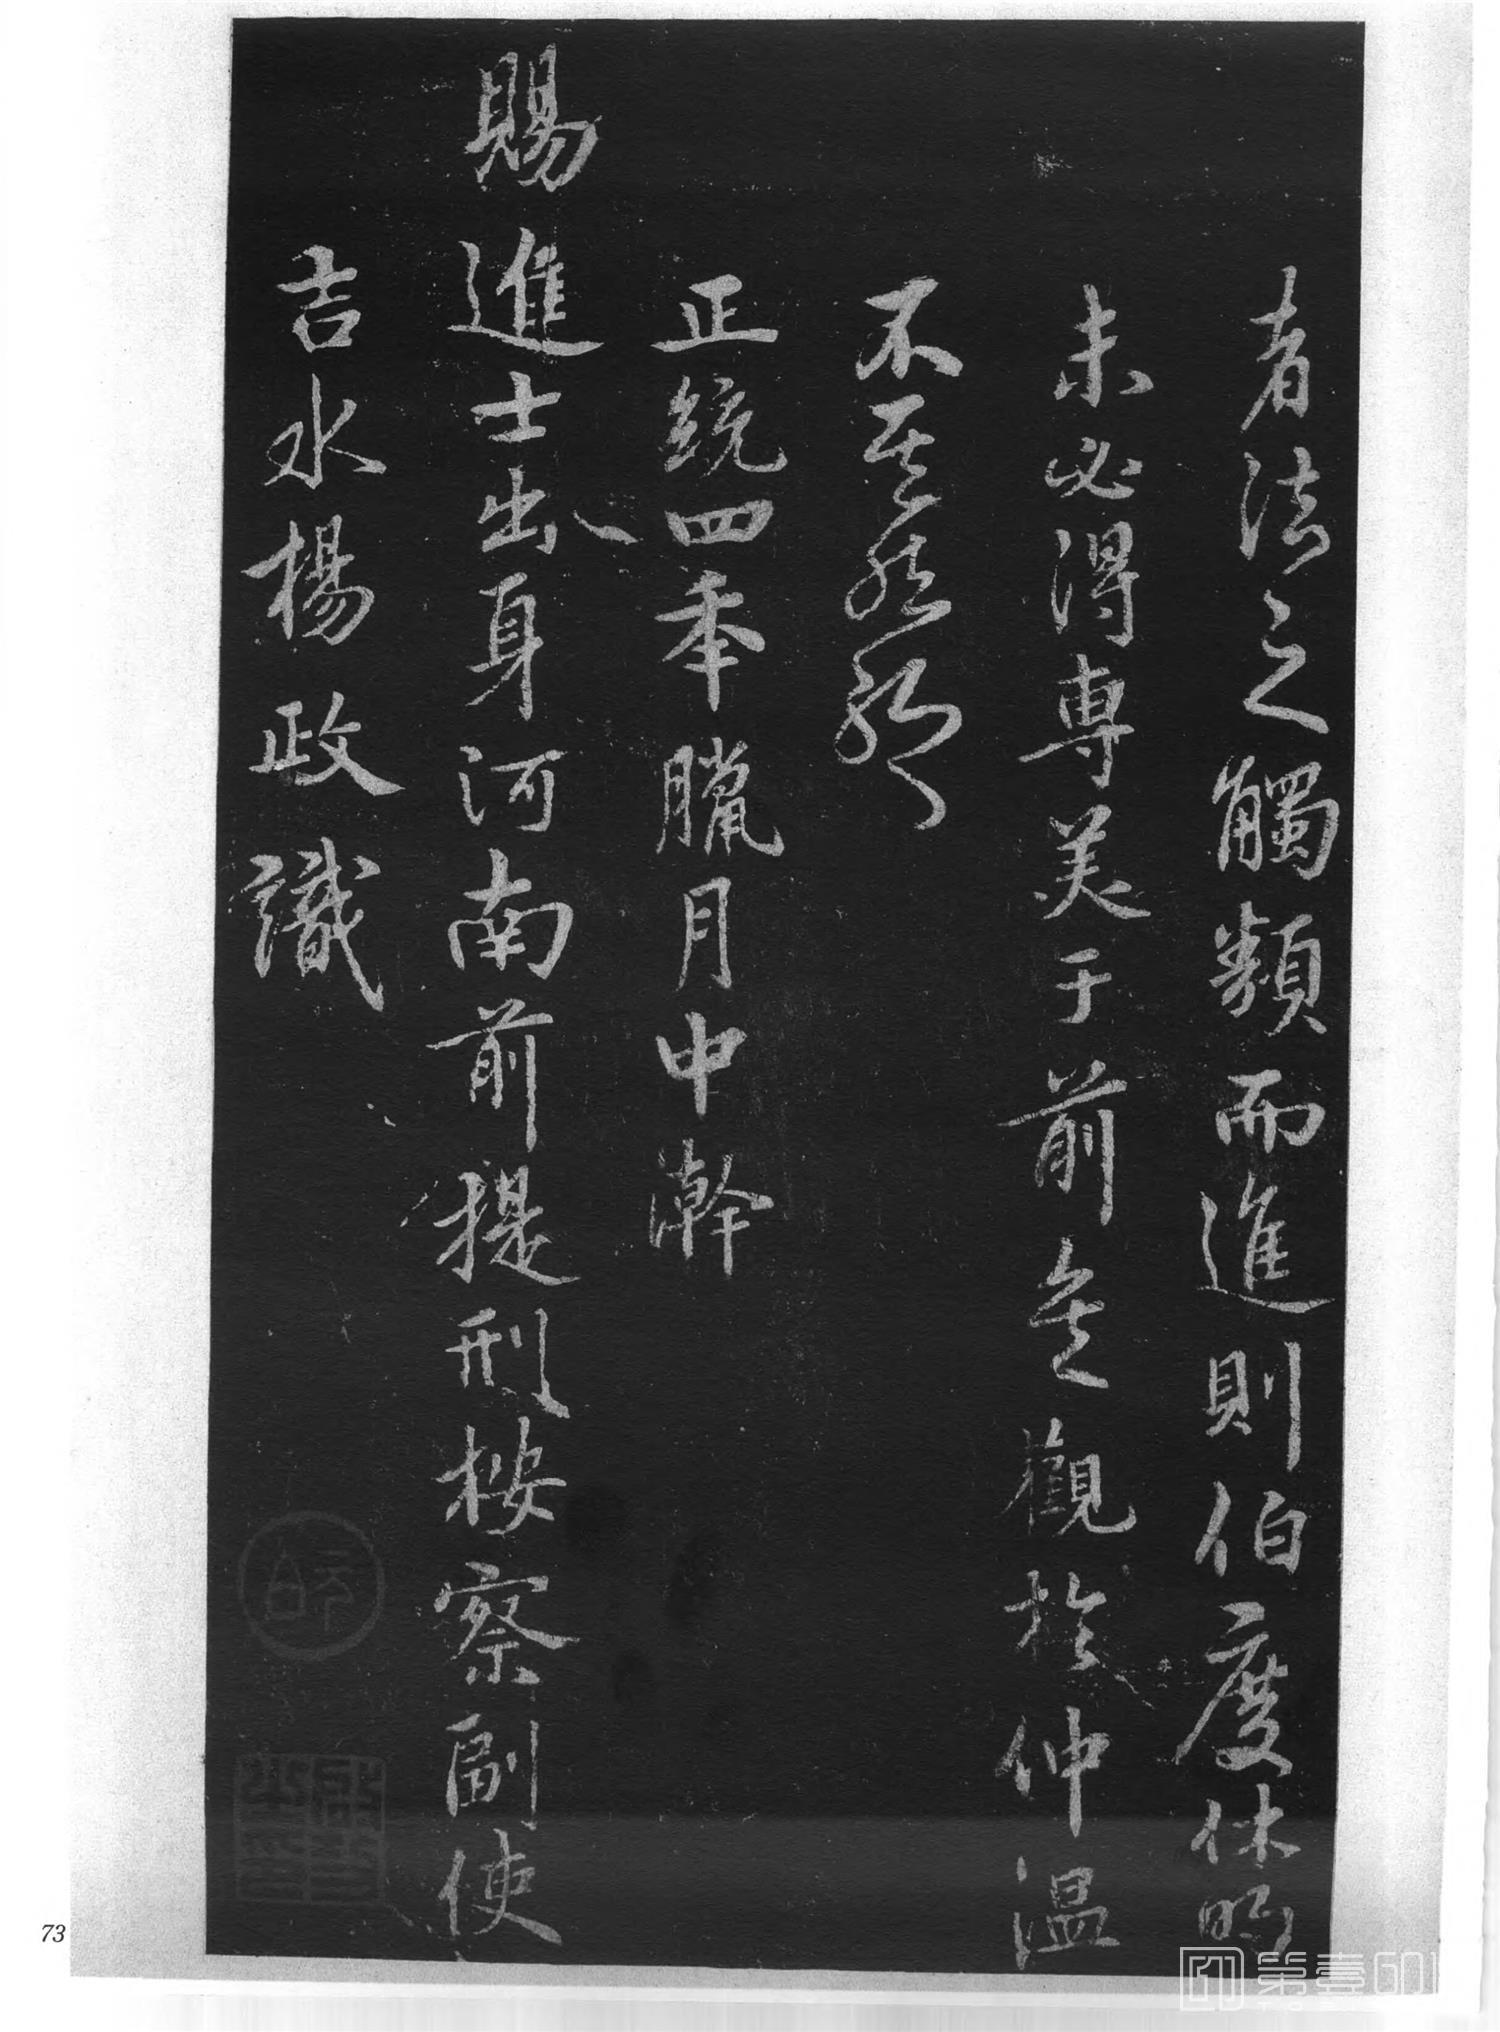 者法之觸類而進則伯度休明
未必得專美于前矣觀於仲溫
不其然耶
正統四年臘月中澣
賜進士出身河南前提刑按察副使
吉水楊政識
73
第壹601